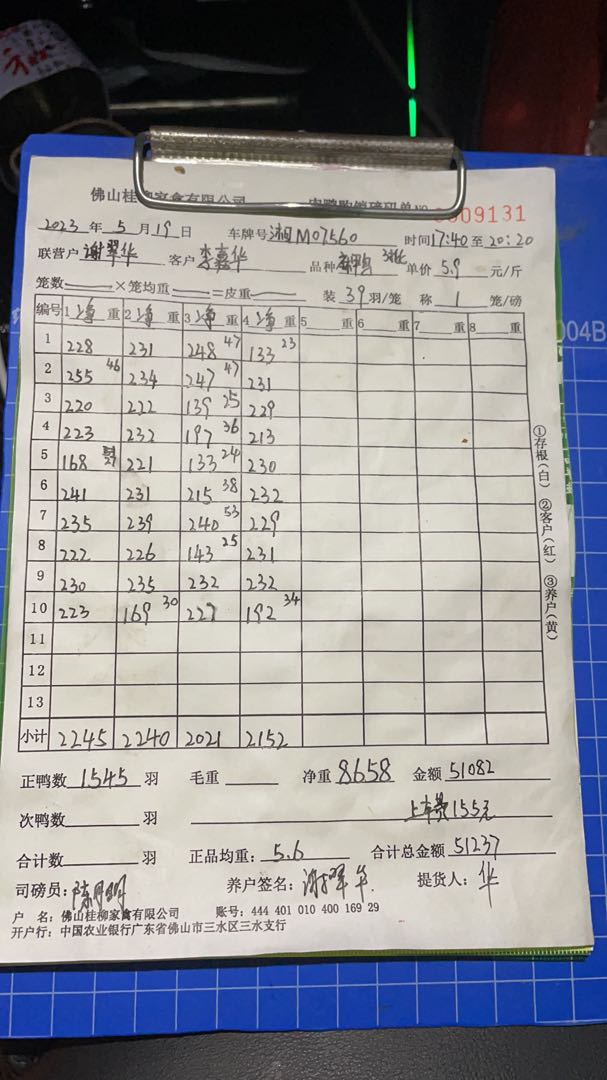 佛山桂柳家禽有限公司 肉鸭购销磅码单 NO 0009131
2023 年 5 月 19 日 车牌号 湘M07560 时间 17:40 至 20:20
联营户 谢翠华 客户 李嘉华 品种 单价 5.9 元/斤
笼数 × 笼均重 = 皮重 装 39 羽/笼 称 1 笼/磅
编号 1 净 重 2 净 重 3 净 重 4 净 重 5 重 6 重 7 重 8 重
1 228 231 248 47 133 23
2 255 46 234 247 47 231
3 220 222 139 25 229
4 223 232 197 36 213
5 168 221 133 24 230
6 241 231 215 38 232
7 235 239 240 53 229
8 222 226 143 25 231
9 230 235 232 232
10 223 169 30 227 192 34
11
12
13
小计 2245 2240 2021 2152
正鸭数 1545 羽 毛重 净重 8658 金额 51082
次鸭数 羽 上车费155元
合计数 羽 正品均重: 5.6 合计总金额 51237
司磅员: 陈明 养户签名: 谢翠华 提货人: 华
户 名: 佛山桂柳家禽有限公司 账号: 444 401 010 400 169 29
开户行: 中国农业银行广东省佛山市三水区三水支行
①存根(白) ②客户(红) ③养户(黄)
004B